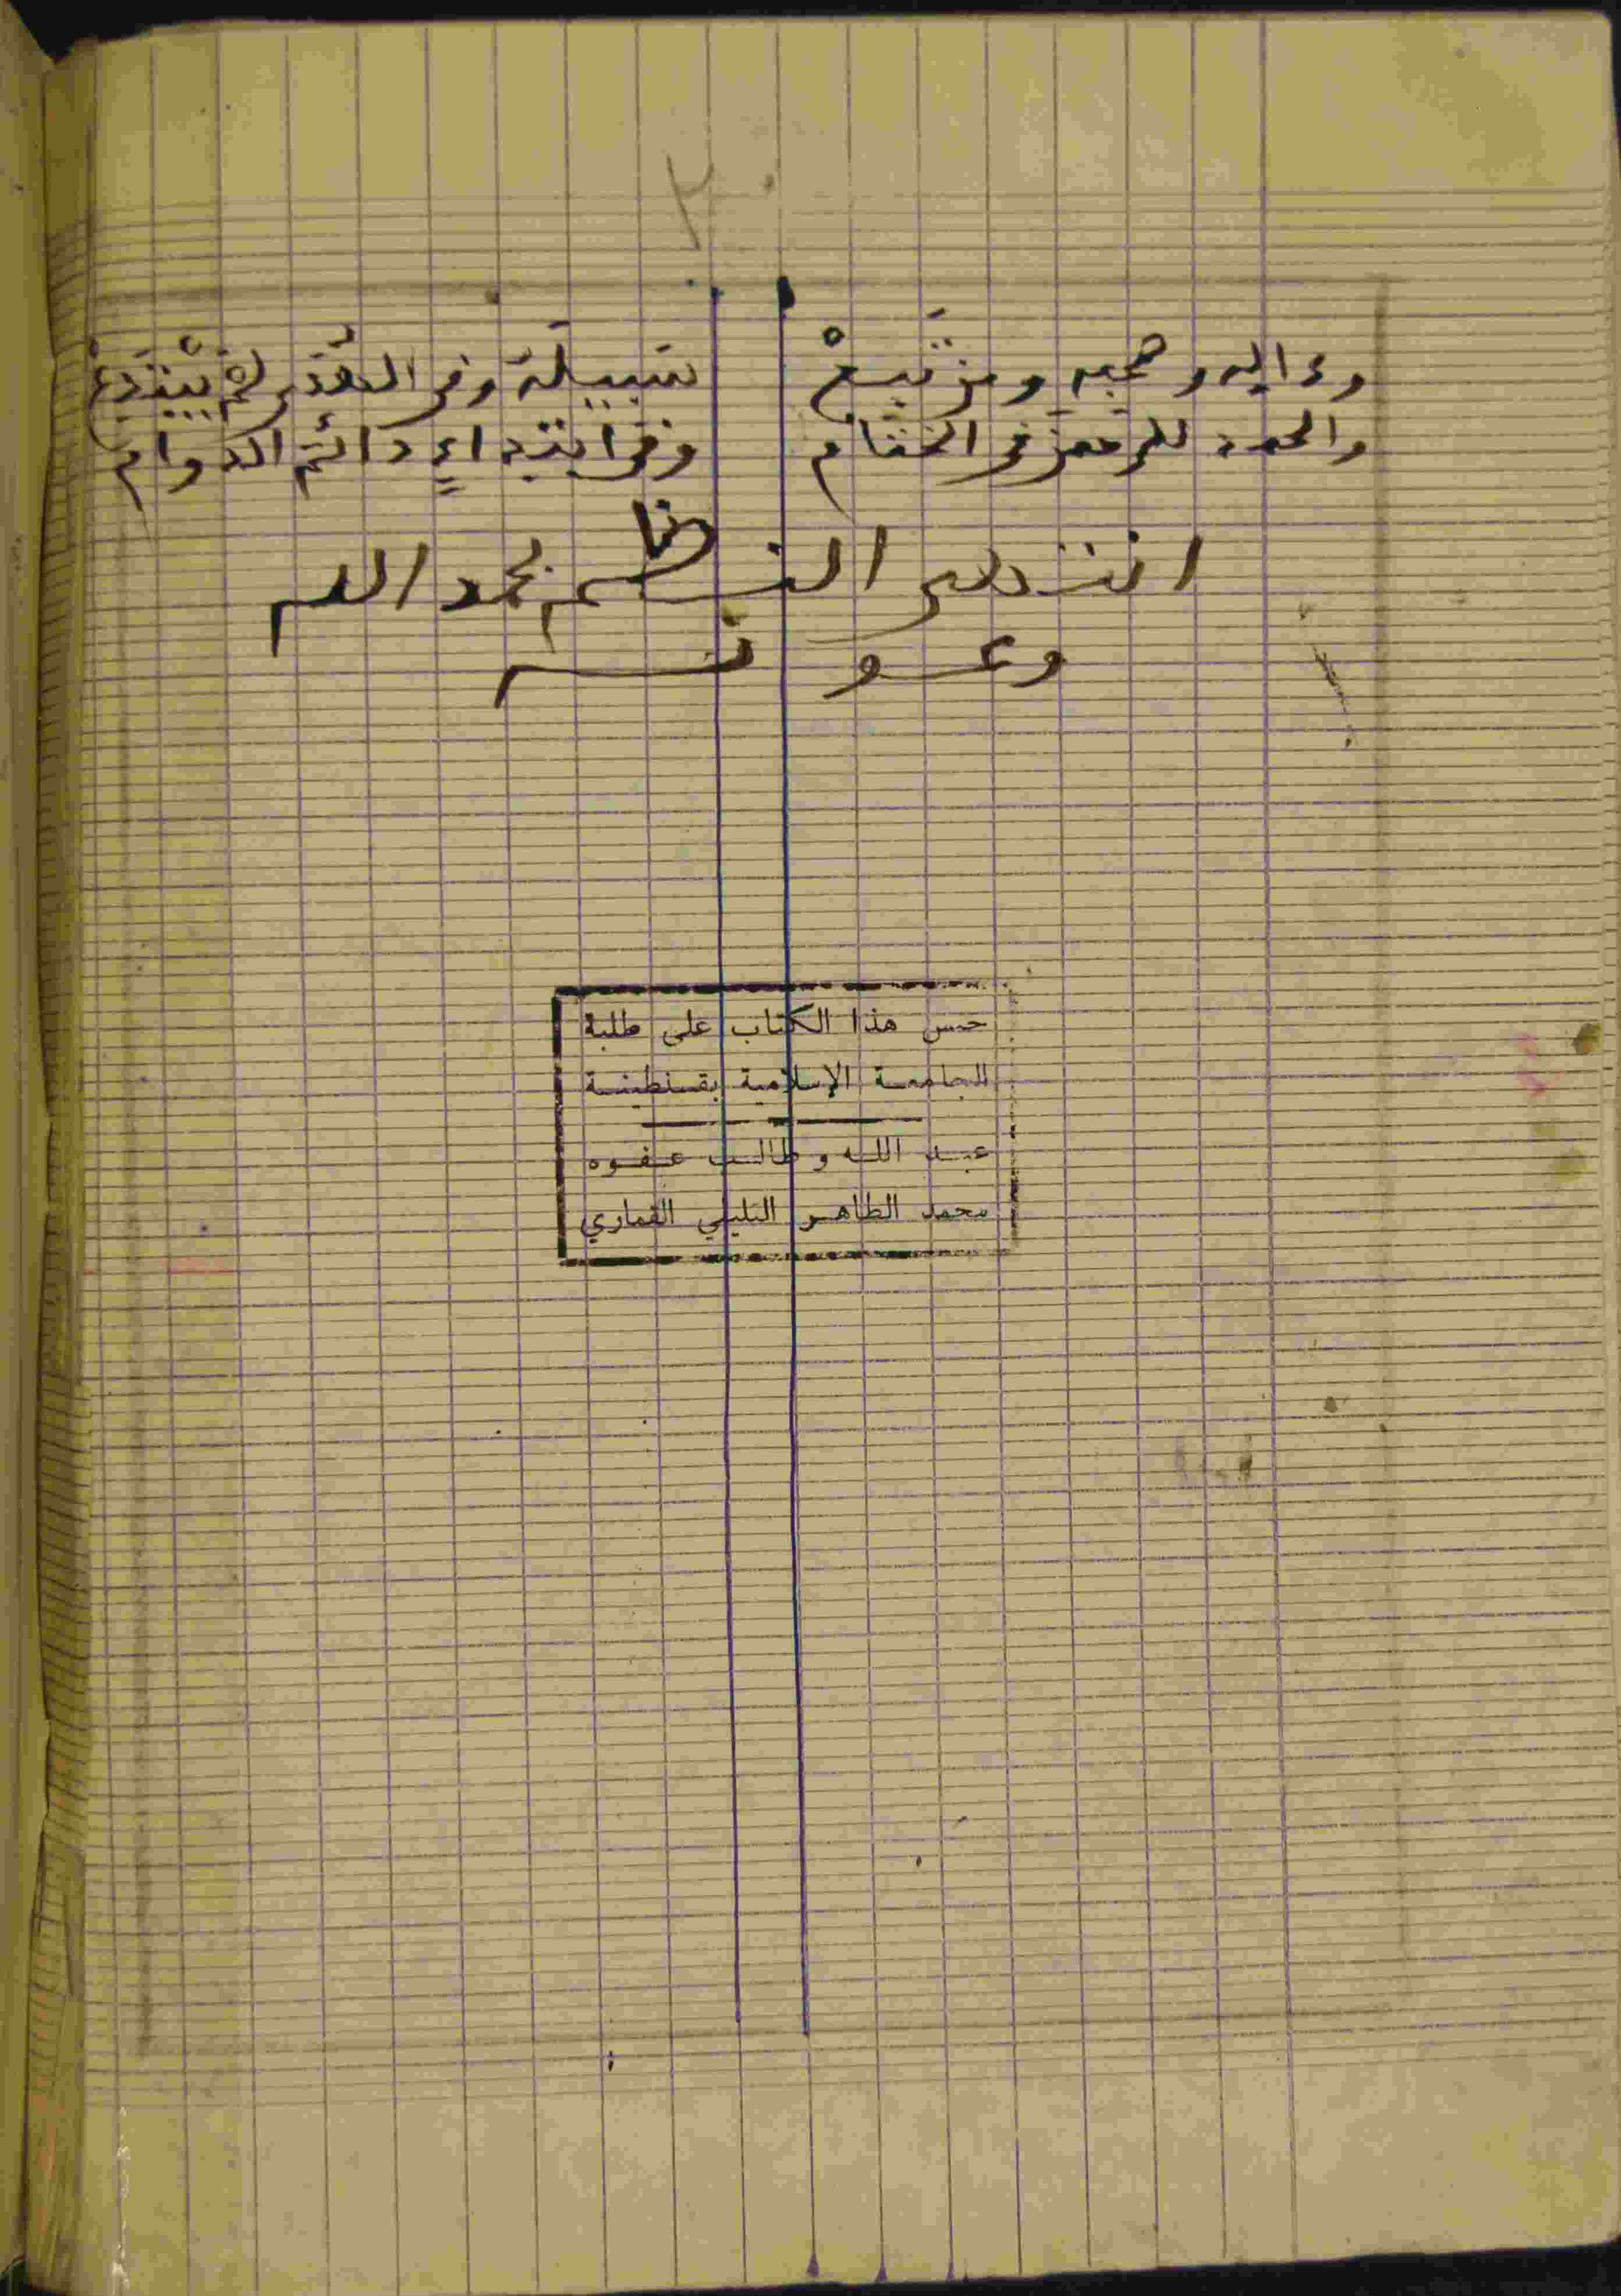 ٢٠
وءاله وصحبه ومن تبع سبيله وفي الهدى لم يبتدع
والحمد لله في الختام وفي ابتداء دائم الدوام
انتهى النظم بحمد الله
وعونه
حبس هذا الكتاب على طلبة
الجامعة الإسلامية بقسنطينة
عبد الله وطالب عفوه
محمد الطاهر التليلي القماري